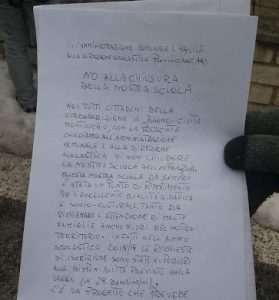 ALL'AMMINISTRAZIONE COMUNALE L'AQUILA
ALLA DIREZIONE SCOLASTICA
NO ALLA CHIUSURA
DELLA NOSTRA SCUOLA
NOI TUTTI CITTADINI DELLA
CIRCOSCRIZIONE DI BAGNO-CIVITA
CON LA PRESENTE
CHIEDIAMO ALL'AMMINISTRAZIONE
COMUNALE E ALLA DIREZIONE
SCOLASTICA DI NON CHIUDERE
LA NOSTRA SCUOLA DELL'INFANZIA.
QUESTA NOSTRA SCUOLA DA SEMPRE
È STATA UN PUNTO DI RIFERIMENTO
PER L'ECCELLENTE QUALITÀ DIDATTICA
E SOCIO-CULTURALE TANTO DA
RICHIAMARE L'ATTENZIONE DI MOLTE
FAMIGLIE ANCHE FUORI DEL NOSTRO
TERRITORIO. INFATTI NELL'ANNO
SCOLASTICO 2018/19 LE RICHIESTE
DI ISCRIZIONE SONO STATE SUPERIORI
ALLE DISPONIBILITÀ PREVISTE DALLA
LEGGE (N 28 BAMBINI).
C'È UN PROGETTO CHE PREVEDE